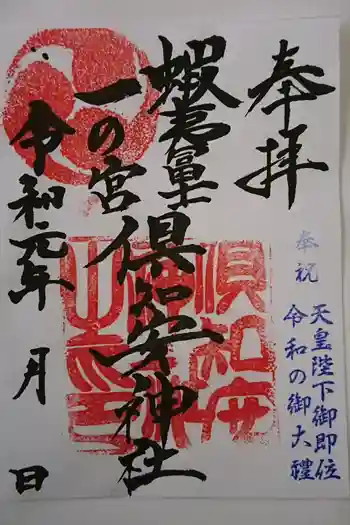 奉拝
奉祝
天皇陛下御即位
令和の御大禮
蝦夷富士
一の宮
倶知安神社
令和元年 月 日